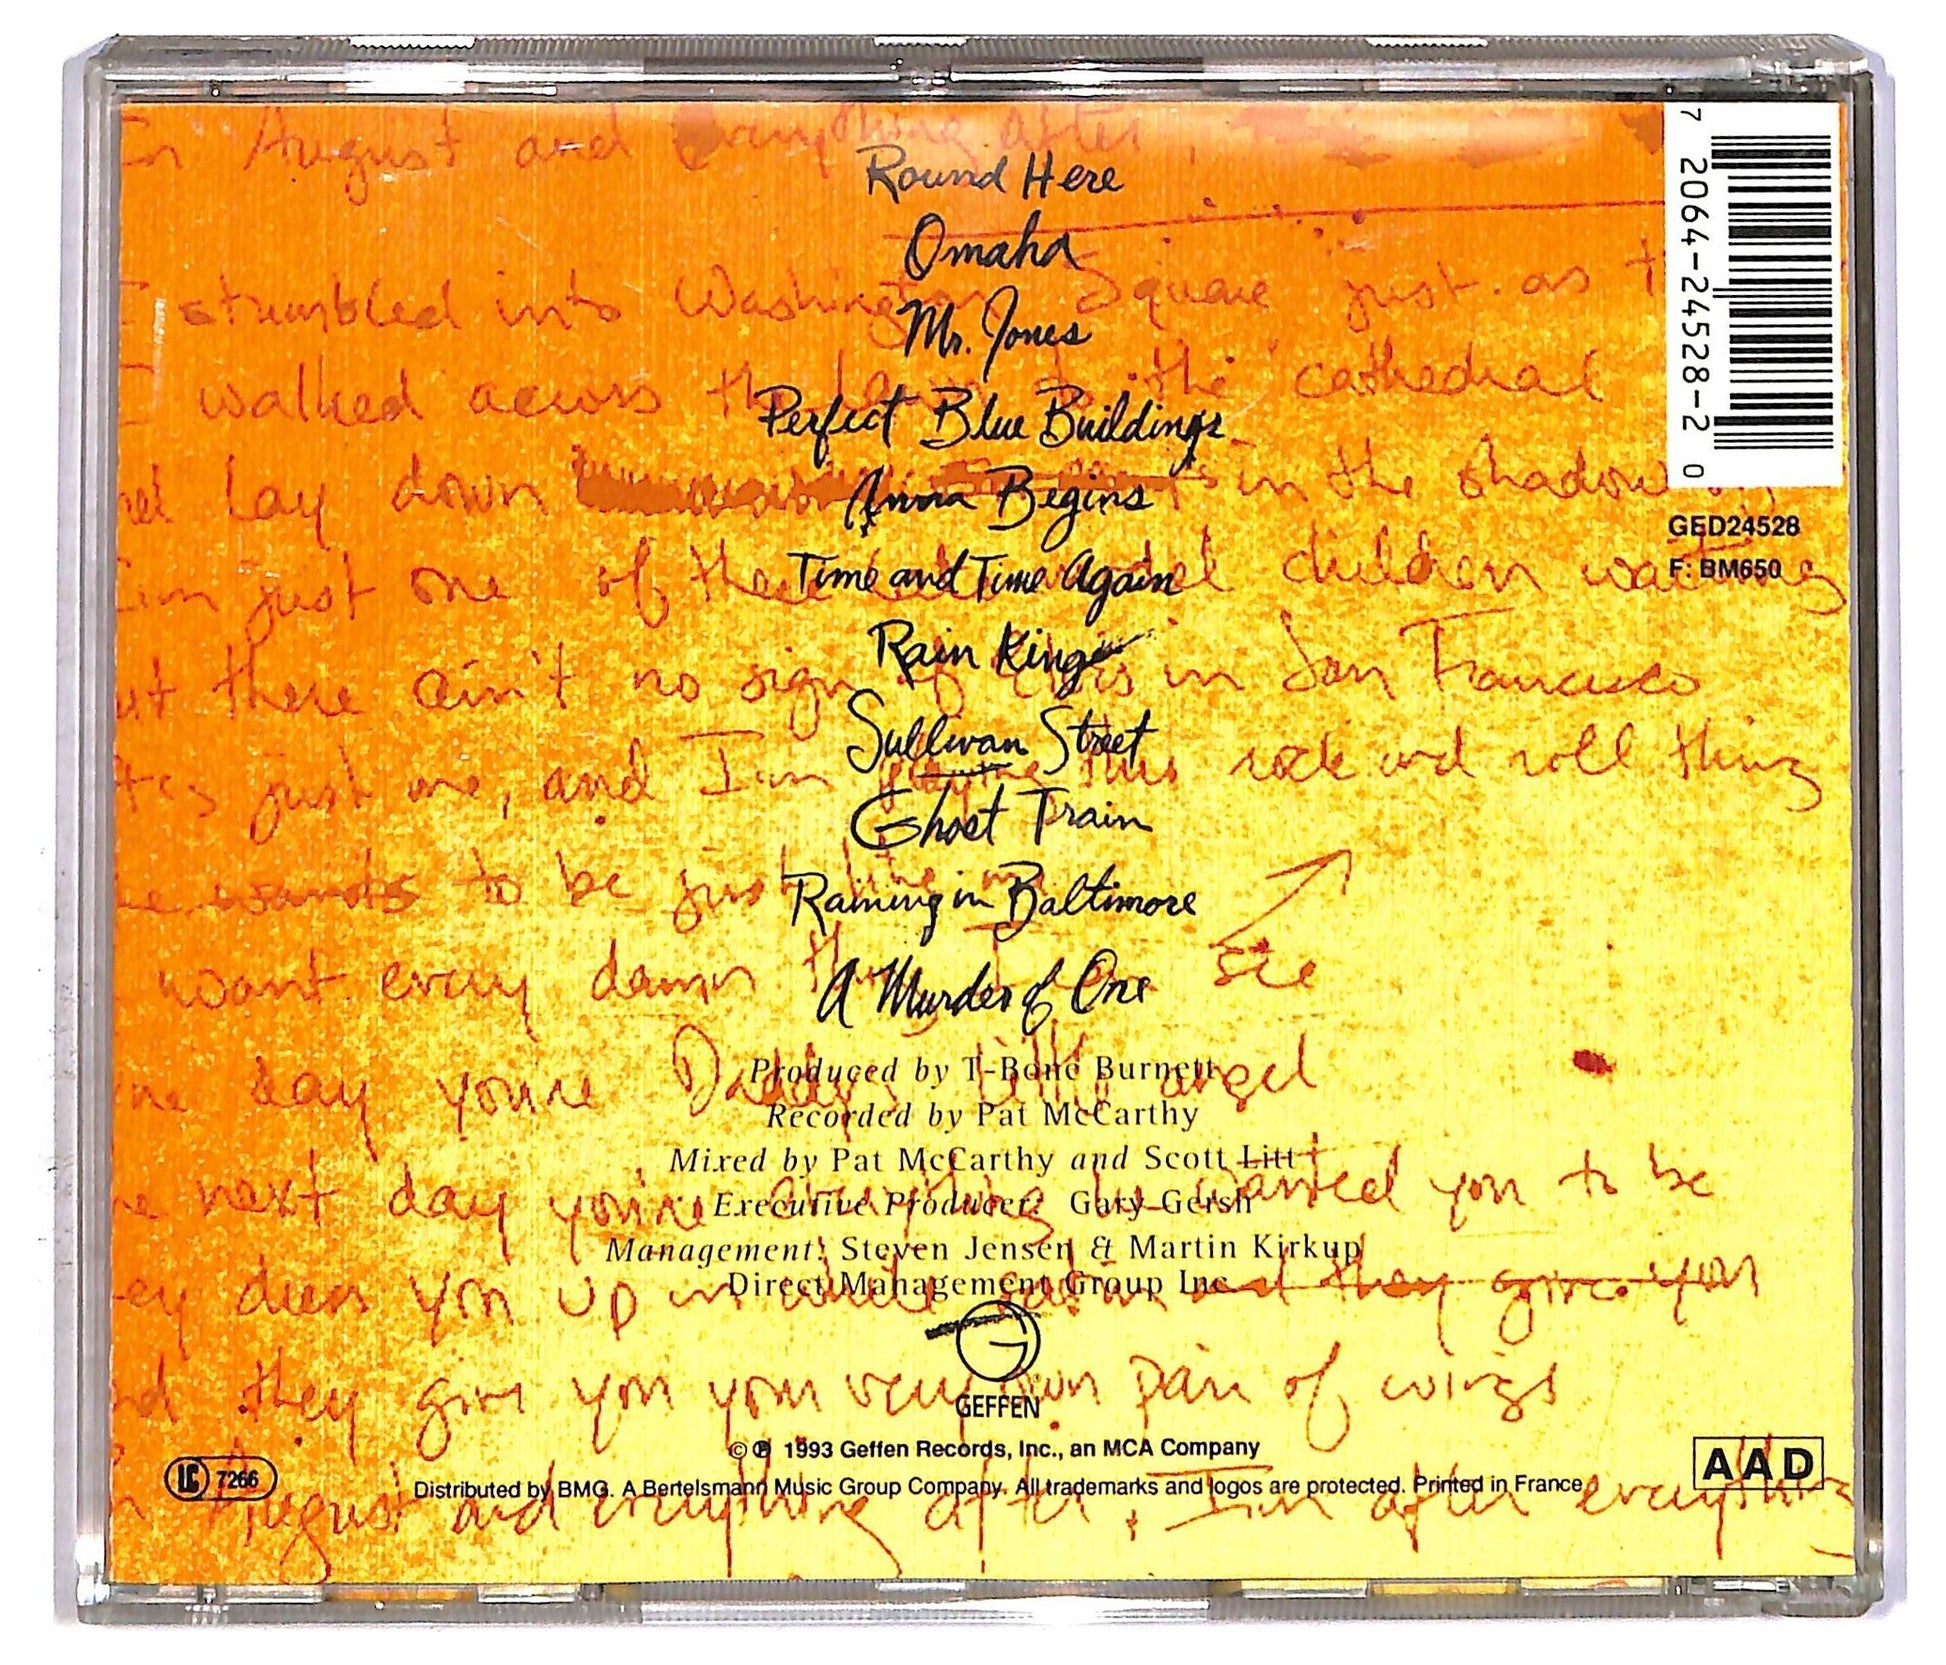 In August and Everything after,
Round Here
Omaha
I stumbled into Washington Square just as
Mr. Jones
I walked across the lawn to the cathedral
Perfect Blue Buildings
lay down in the shadow
Anna Begins
I'm just one of these children waiting
Time and Time Again
Rain King
there ain't no sign of in San Francisco
Sullivan Street
just me, and I'm playing this rock and roll thing
Ghost Train
wants to be just like me
Raining in Baltimore
want every damn thing I can see
A Murder of One
day you're Daddy's little angel
Produced by T-Bone Burnett
Recorded by Pat McCarthy
Mixed by Pat McCarthy and Scott Litt
next day you're everything he wanted you to be
Executive Producer: Gary Gersh
Management: Steven Jensen & Martin Kirkup
Direct Management Group Inc.
dress you up in white satin and they give you
G
they give you your very own pair of wings
GEFFEN
© ℗ 1993 Geffen Records, Inc., an MCA Company
LC 7266
Distributed by BMG. A Bertelsmann Music Group Company. All trademarks and logos are protected. Printed in France
AAD
August and everything after, I'm after everything
7 2064-24528-2 0
GED24528
F: BM650